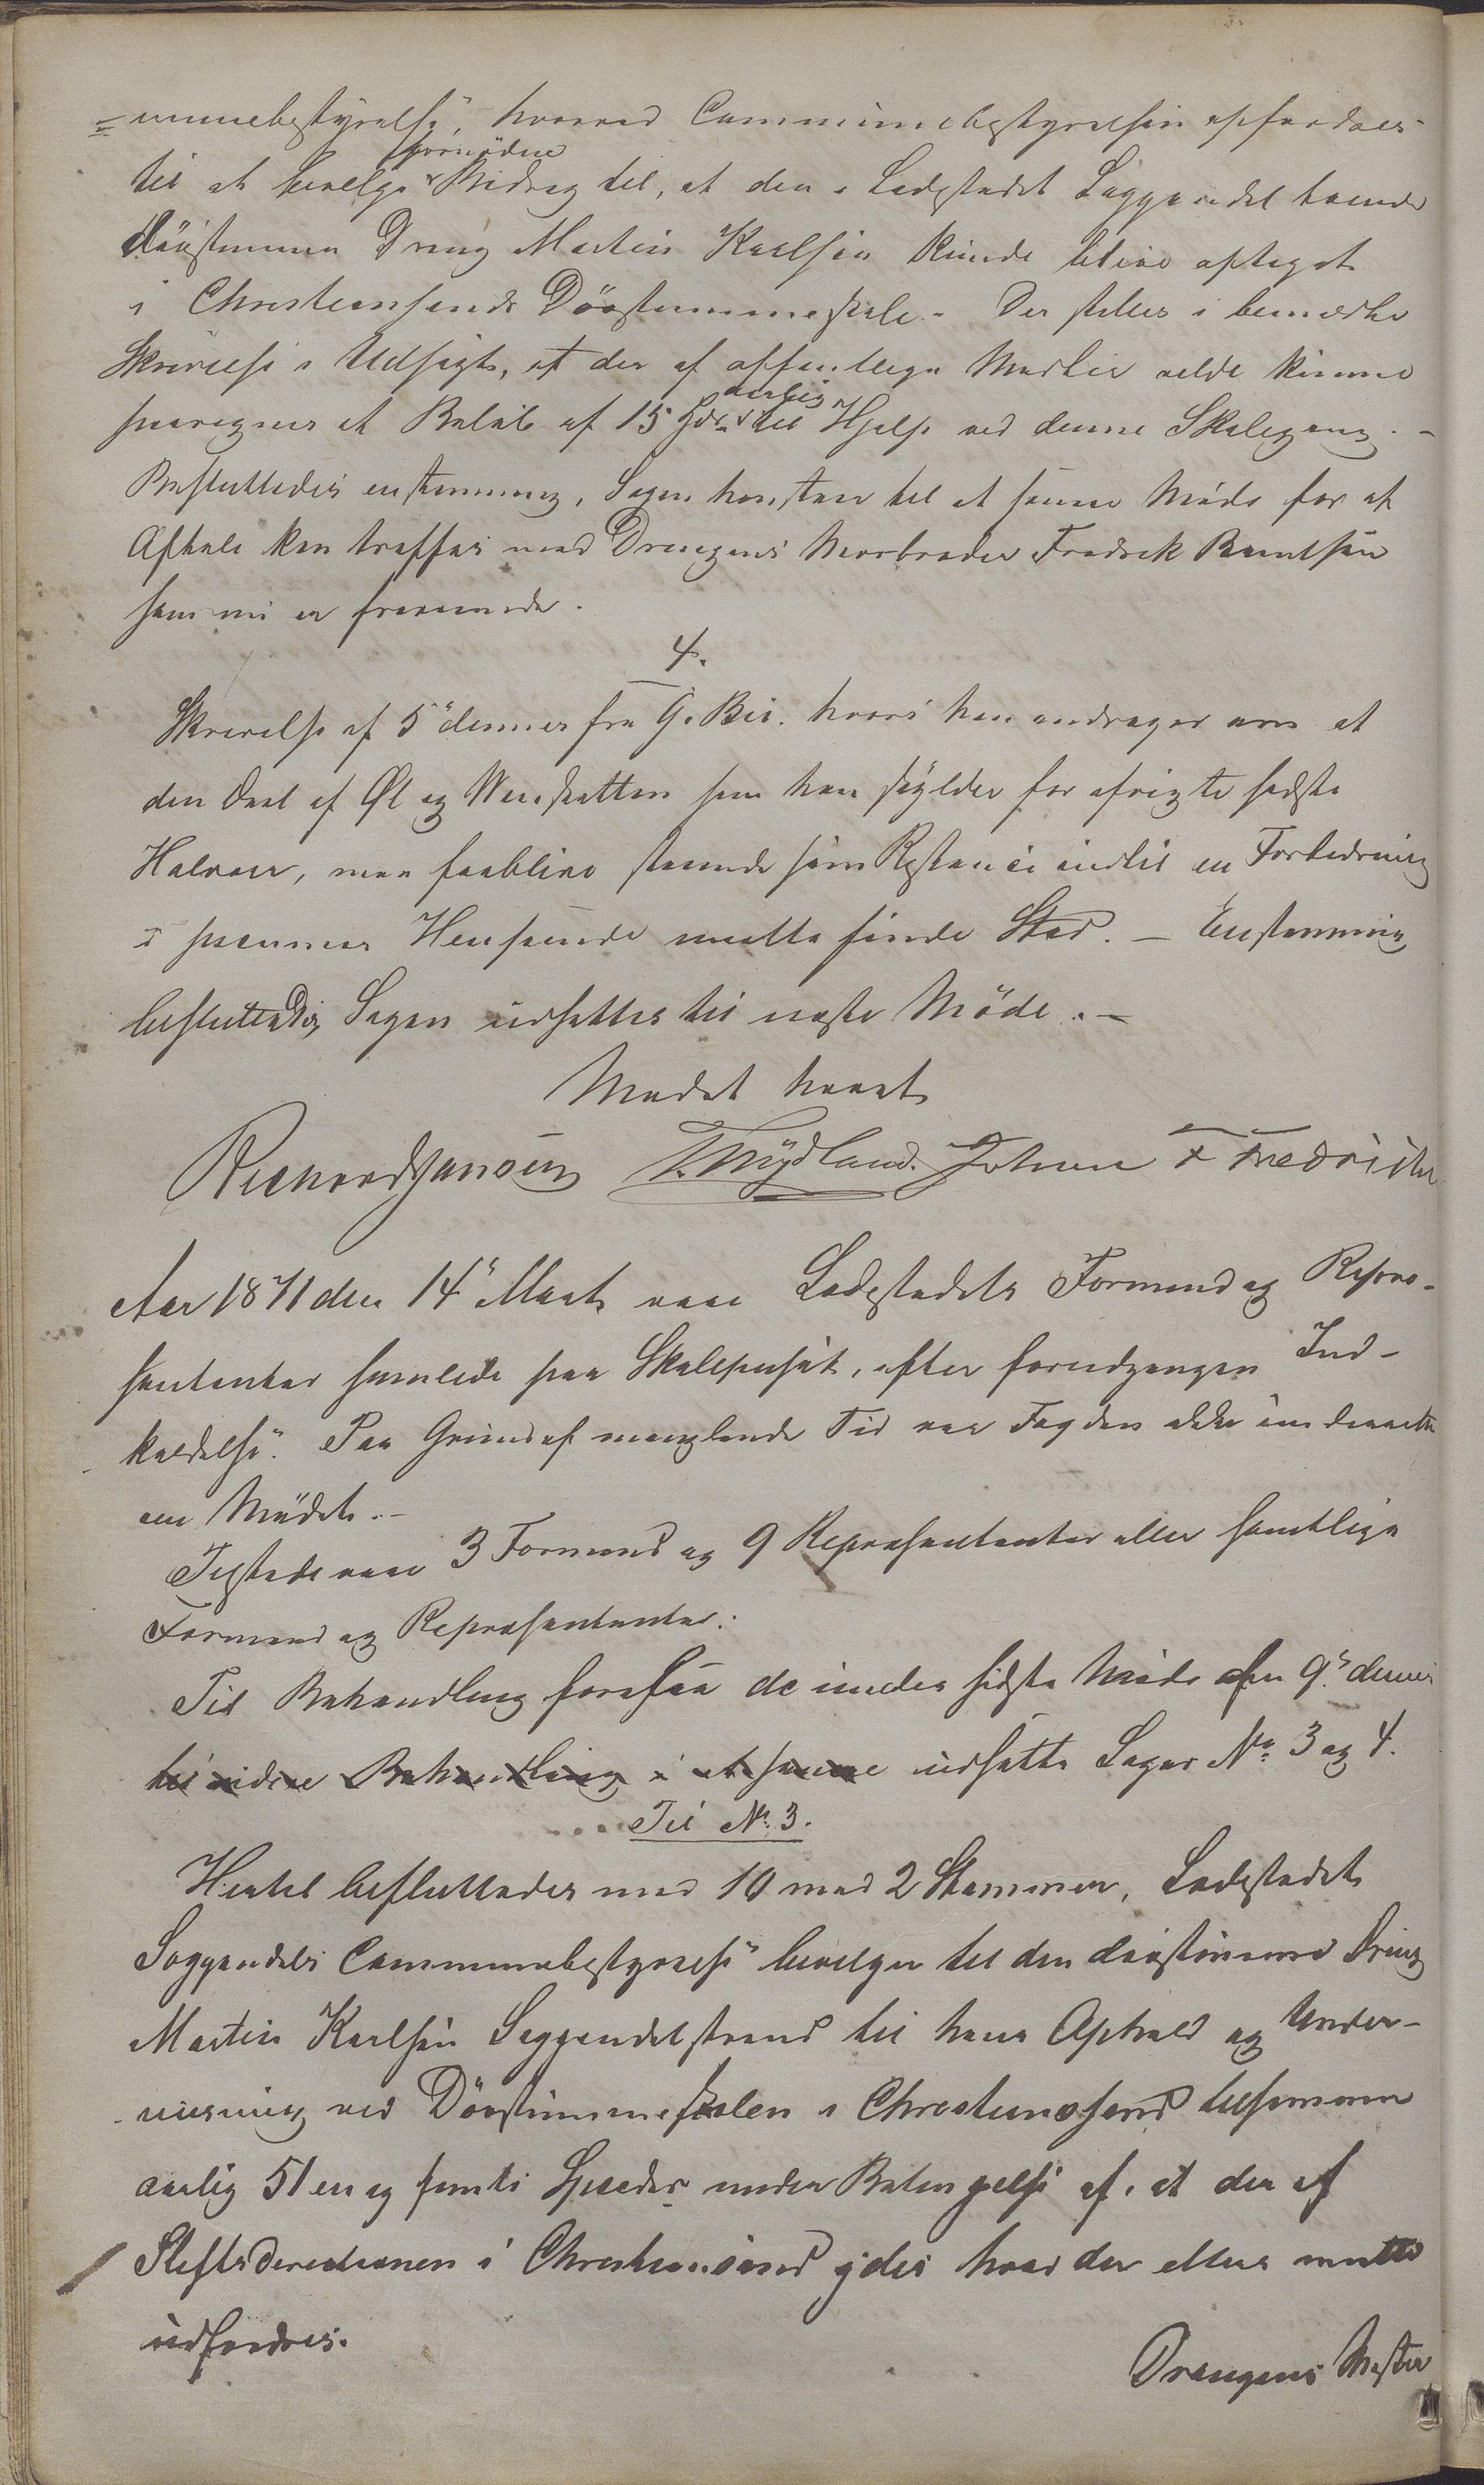 =munebestyrelse, hvorved Communebestyrelsen opfordres
til at bevilge fornødne Bidrag til, at den i Ladestedet Soggendal boende
døvstumme Dreng Martin Karlsen kunde blive optaget
i Christiansands Døvstummeskole. Der stilles i bemeldte
Skrivelse i Udsigt, at der af offentlige Midler vilde kunne
paaregnes et Beløb af 15 Spdr aarlig til Hjelp ved denne Skolegang. -
Besluttedes enstemmig, Sagen henstaar til et senere Møde for at
Aftale kan træffes med Drengens Morbroder Fredrik Berntsen
som nu er fraværende.
4.
Skrivelse af 5te dennes fra G. Bie. hvori han andrager om at
den Deel af Øl og Vinskatten som han skylder for afvigte sidste
Halvaar, maa faablive staaende som Restance indtil en Forbedring
i hans Henseende maatte finde Sted. - Enstemmig
besluttedes, Sagen udsættes til næste Møde. -
Mødet hævet
Richard Jansen T. Mydland. Johan F Fredriksen
Aar 1871 den 14de Marts vare Ladestedets Formænd og Repræ-
sentanter samlede paa Skolehuset, efter forudgangen Ind-
kaldelse. Paa Grund af manglende Tid var Fogden ikke underrettet
om Mødet. -
Tilstede vare 3 Formænd og 9 Repræsentanter eller samtlige
Formænd og Repræsentanter:
Til Behandling foresaa de under sidste Møde den 9de dennes
til videre Behandling i et senere udsatte Sager No 3 og 4.
Til No 3.
Hertil besluttedes med 10 mod 2 Stemmer, Ladestedet
Soggendals Communebestyrelse bevilger til den døvstumme Dreng
Martin Karlsen Soggendalstrand til hans Ophold og Under-
viisning ved Døvstummeskolen i Christiansand tilsammen
aarlig 51 en og femti Speciedr under Betingelse af, at der af
Stiftsdirectionen i Christiansand ydes hvad der ellers maatte
udfordres.
Drengens Moster